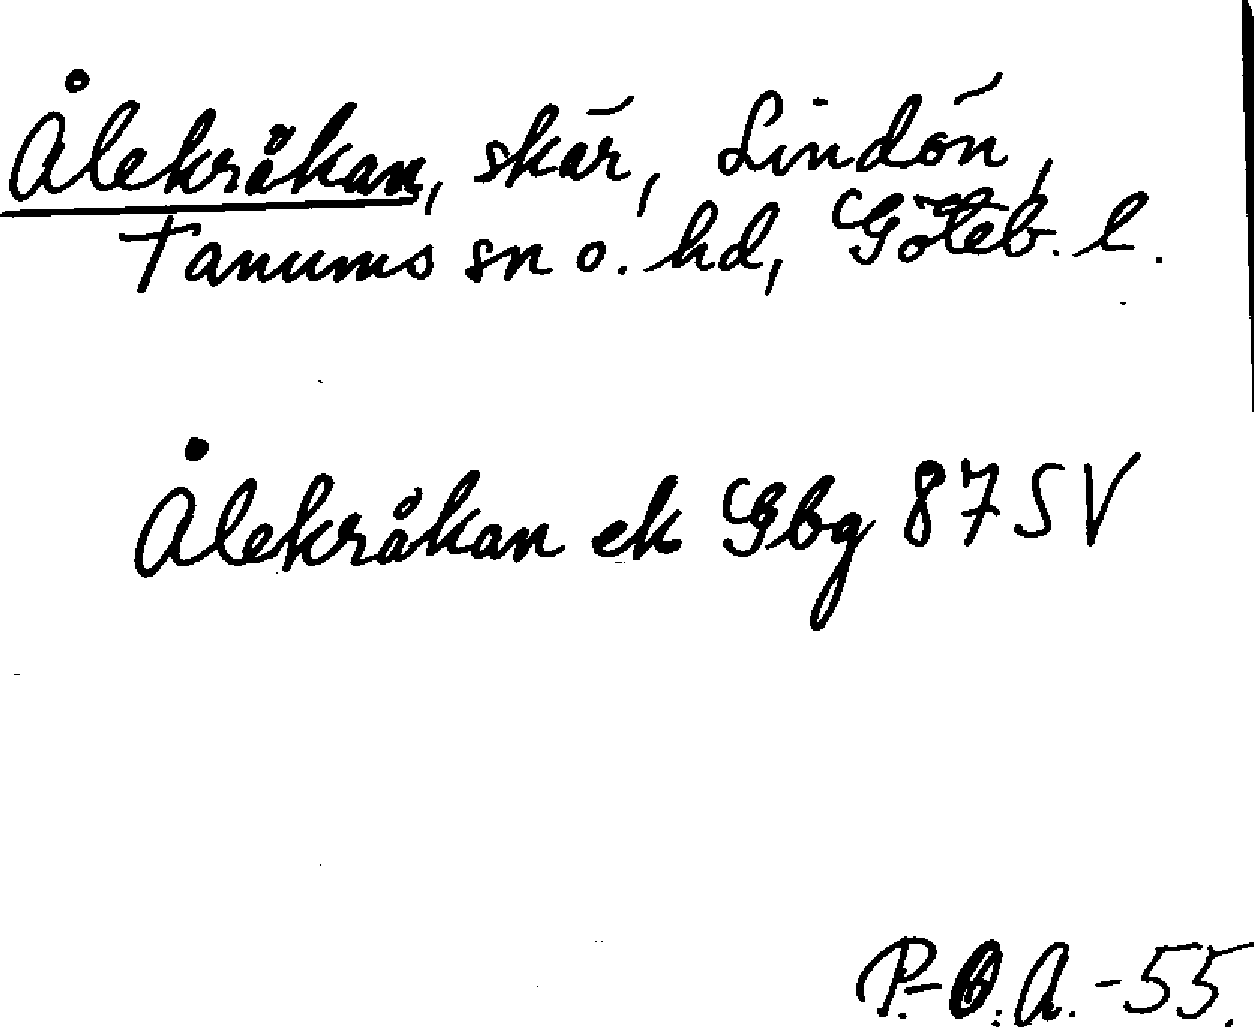 Ålekråkan, skär, Lindön,
Tanums sn o. hd, Göteb. l.
Ålekråkan ek Gbg 87 SV
P.-O.A.-55.